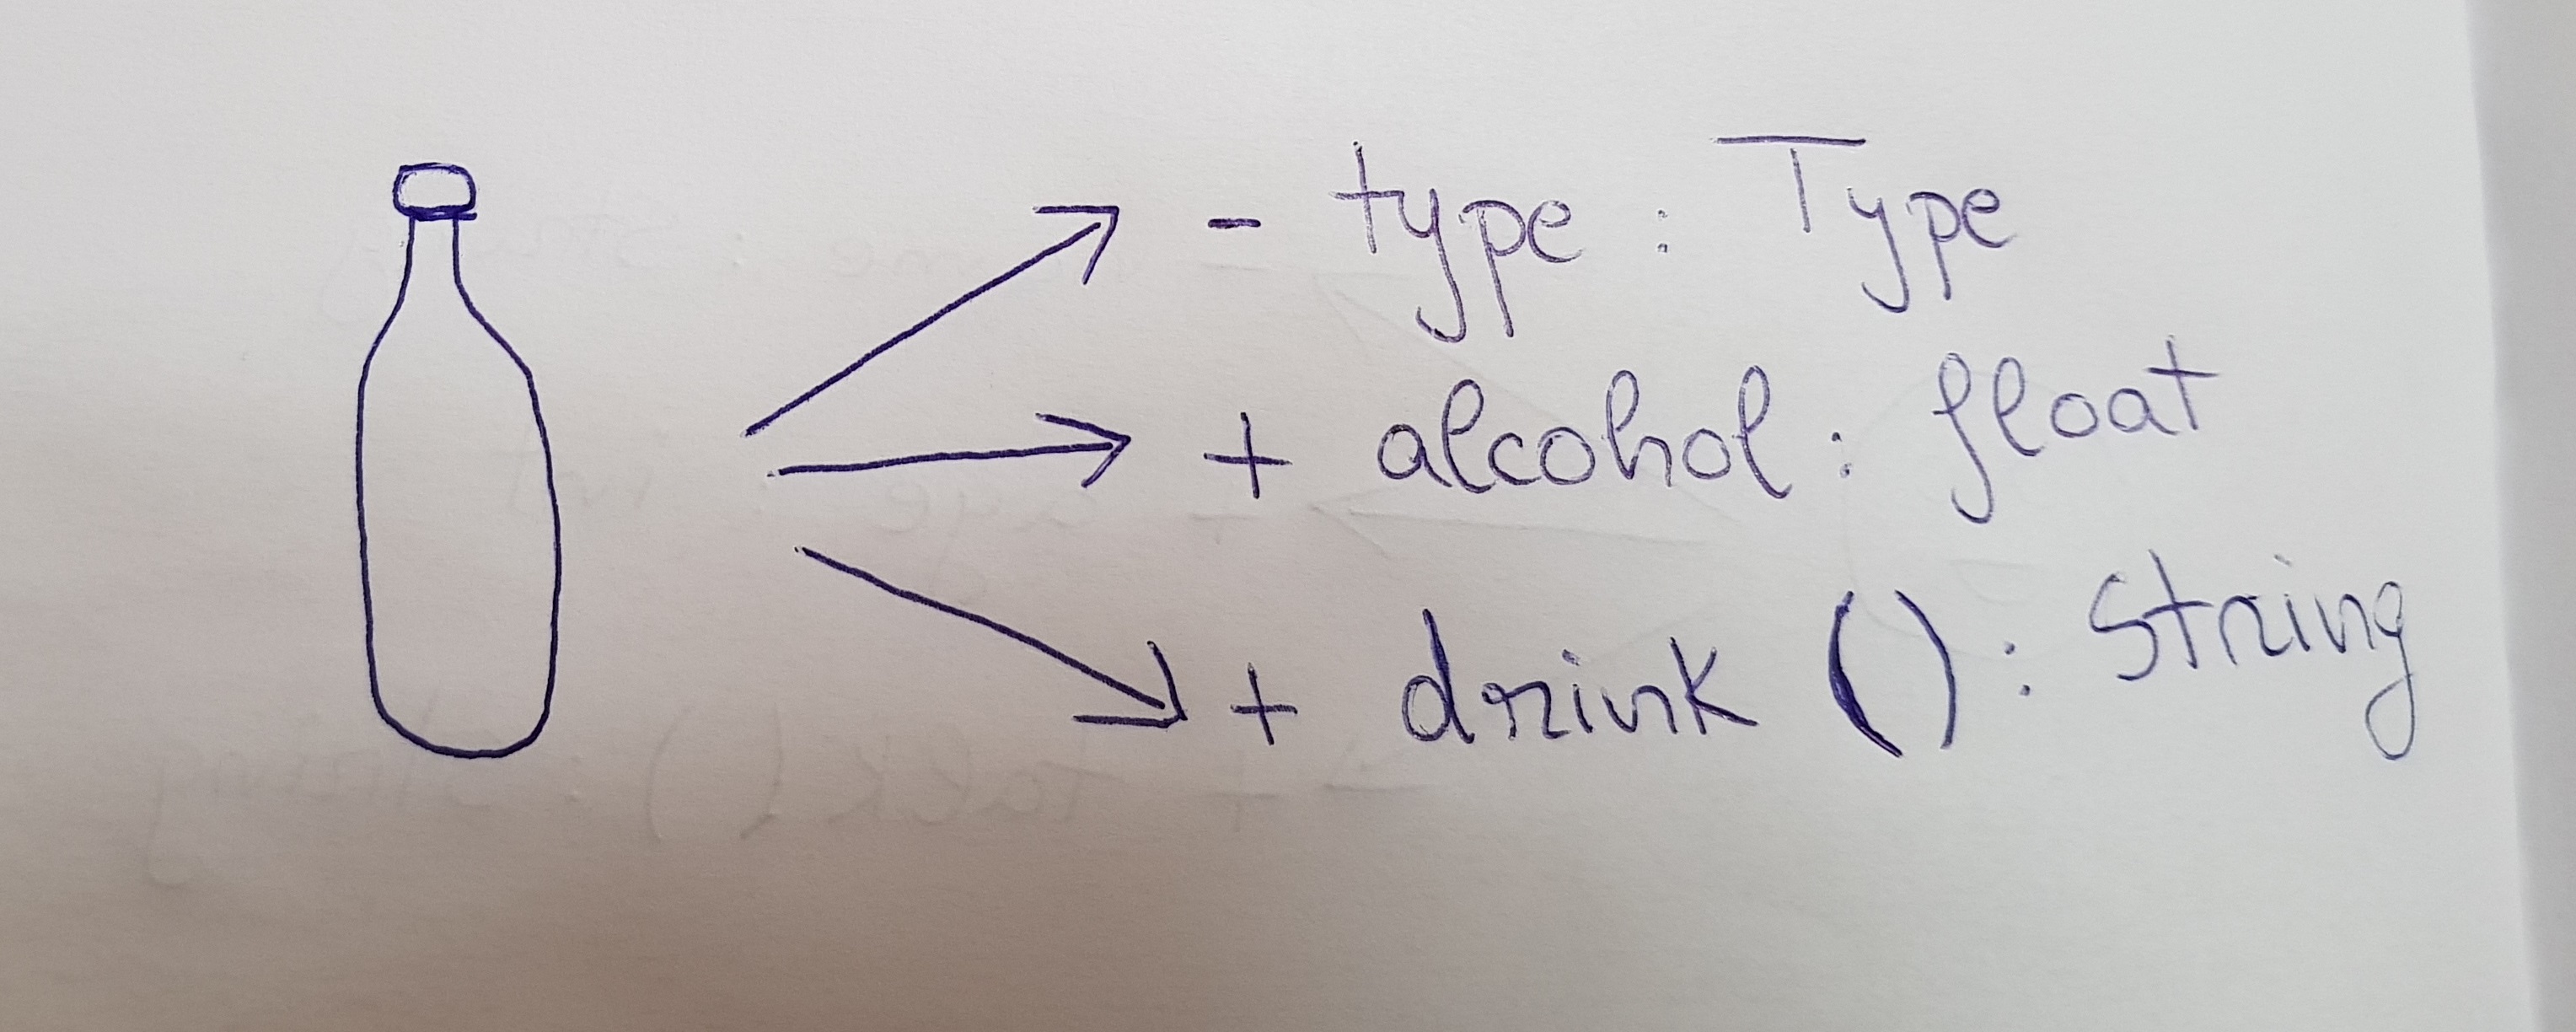 - type : Type
+ alcohol : float
+ drink () : String